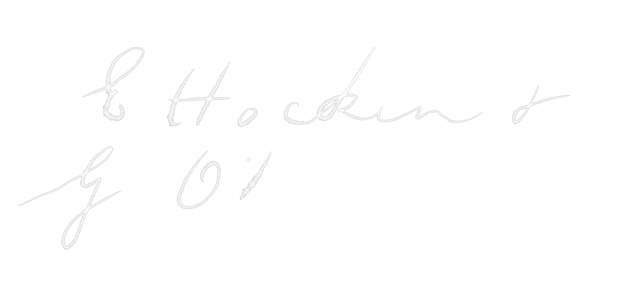 E Hockin &
G